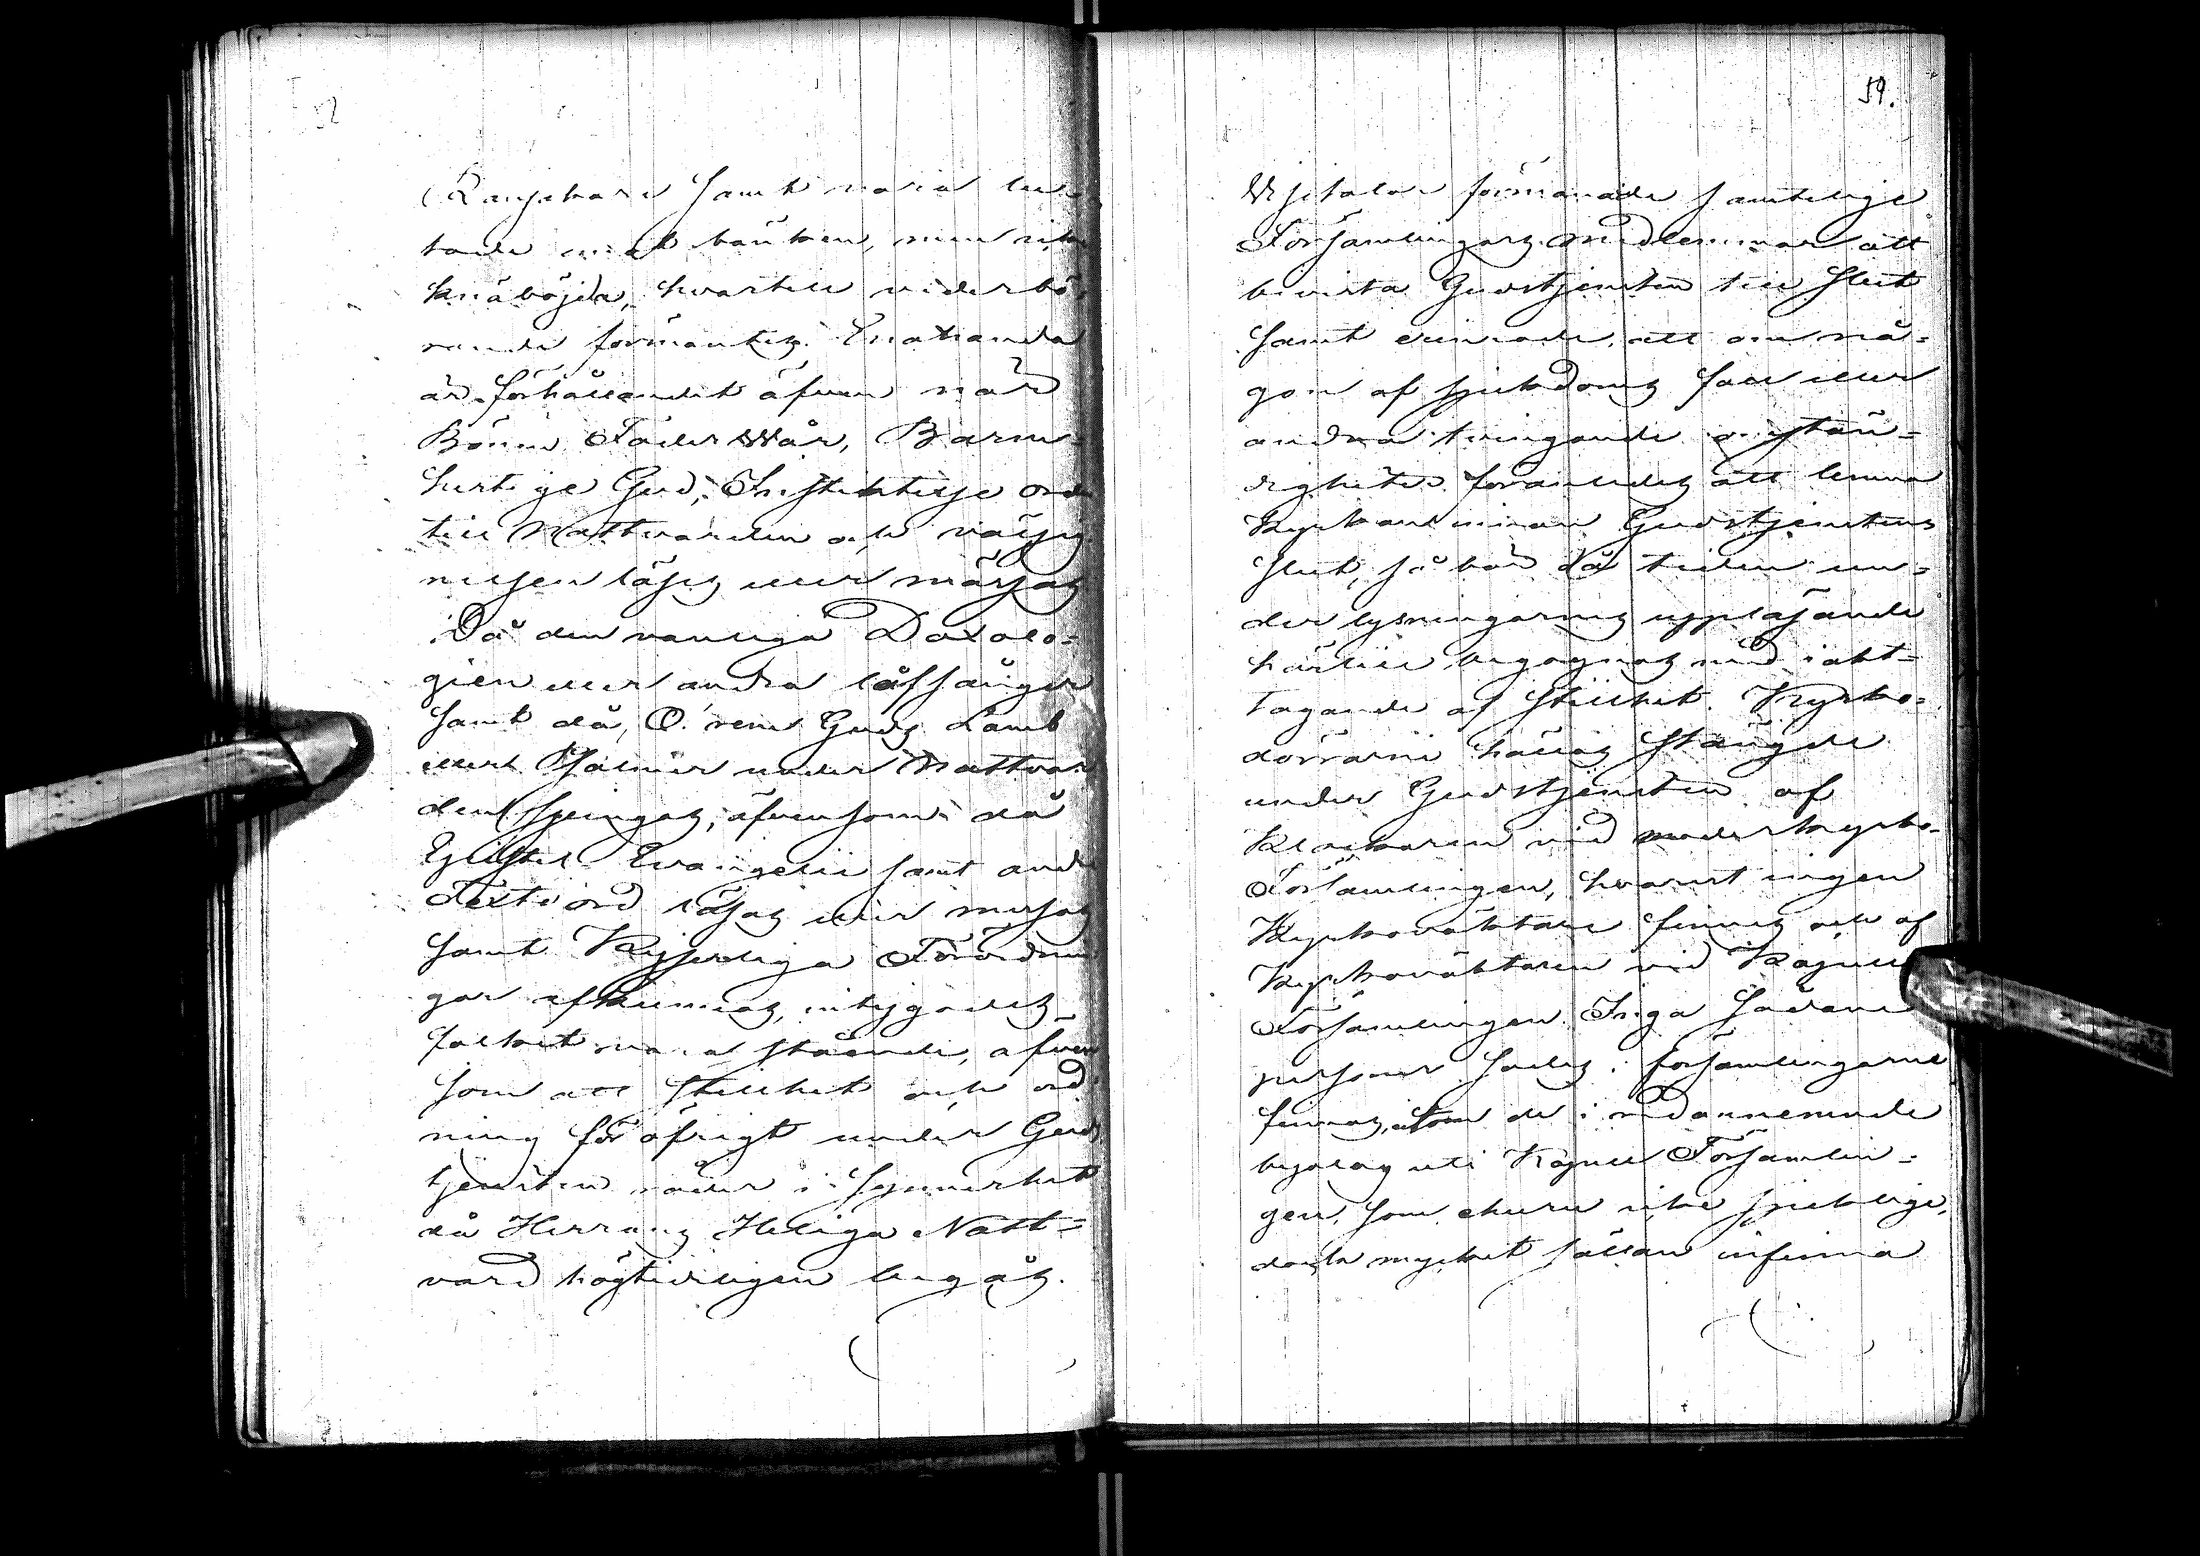 52
Ransakare samt vara lu-
tade mot bänken, men icke
knäböjda, hvartill vederbö-
rande förmantes. Enahanda
är förhållandet äfven när
Bönen Fader Wår, Barm-
hertige Gud, Instiktelse orden
till Nattvarden och välsig
nelsen läses eller mässas
Då den vanliga Doxolo-
gien eller andra låfsånger
samt då, O! rene Guds Lamb
eller Psalmer under Nattvar
den sjungas, äfvensom då
Epistel Evangelii samt andr
Textord läsas eller mässas
samt Kejserliga Förordnin
gar afkunnas, intygades
folket vara stående, äfven
som att stillhet och ord
ning för öfrigt under Guds
tjensten råder i synnerhet
då Herrans Heliga Natt-
vard högtideligen begås.
59.
Visitator förmanade samtelige
Församlingars medlemmar att
bevista Gudstjensten till slut
samt erinrade, att om nå-
gon af sjukdoms fall eller
andra tvingande omstän-
digheter föranledes att lemna
Kyrkan innan Gudstjenstens
slut, så bör då tiden un-
der lysningarnes uppläsande
härtill begagnas med iakt-
tagande af stillhet. Kyrko-
dörrarne hållas stängde
under Gudstjensten af
Klockaren vid moderkyrko-
Församlingen, hvarest ingen
Kyrkoväktare finnes och af
Kyrkoväktaren vid
Församlingen. Inga sådane
personer sades i församlingarne
finnas, utom de i
bysalag uti Församlin-
gen, som ehuru icke sjuklige,
dock mycket sällan infinna